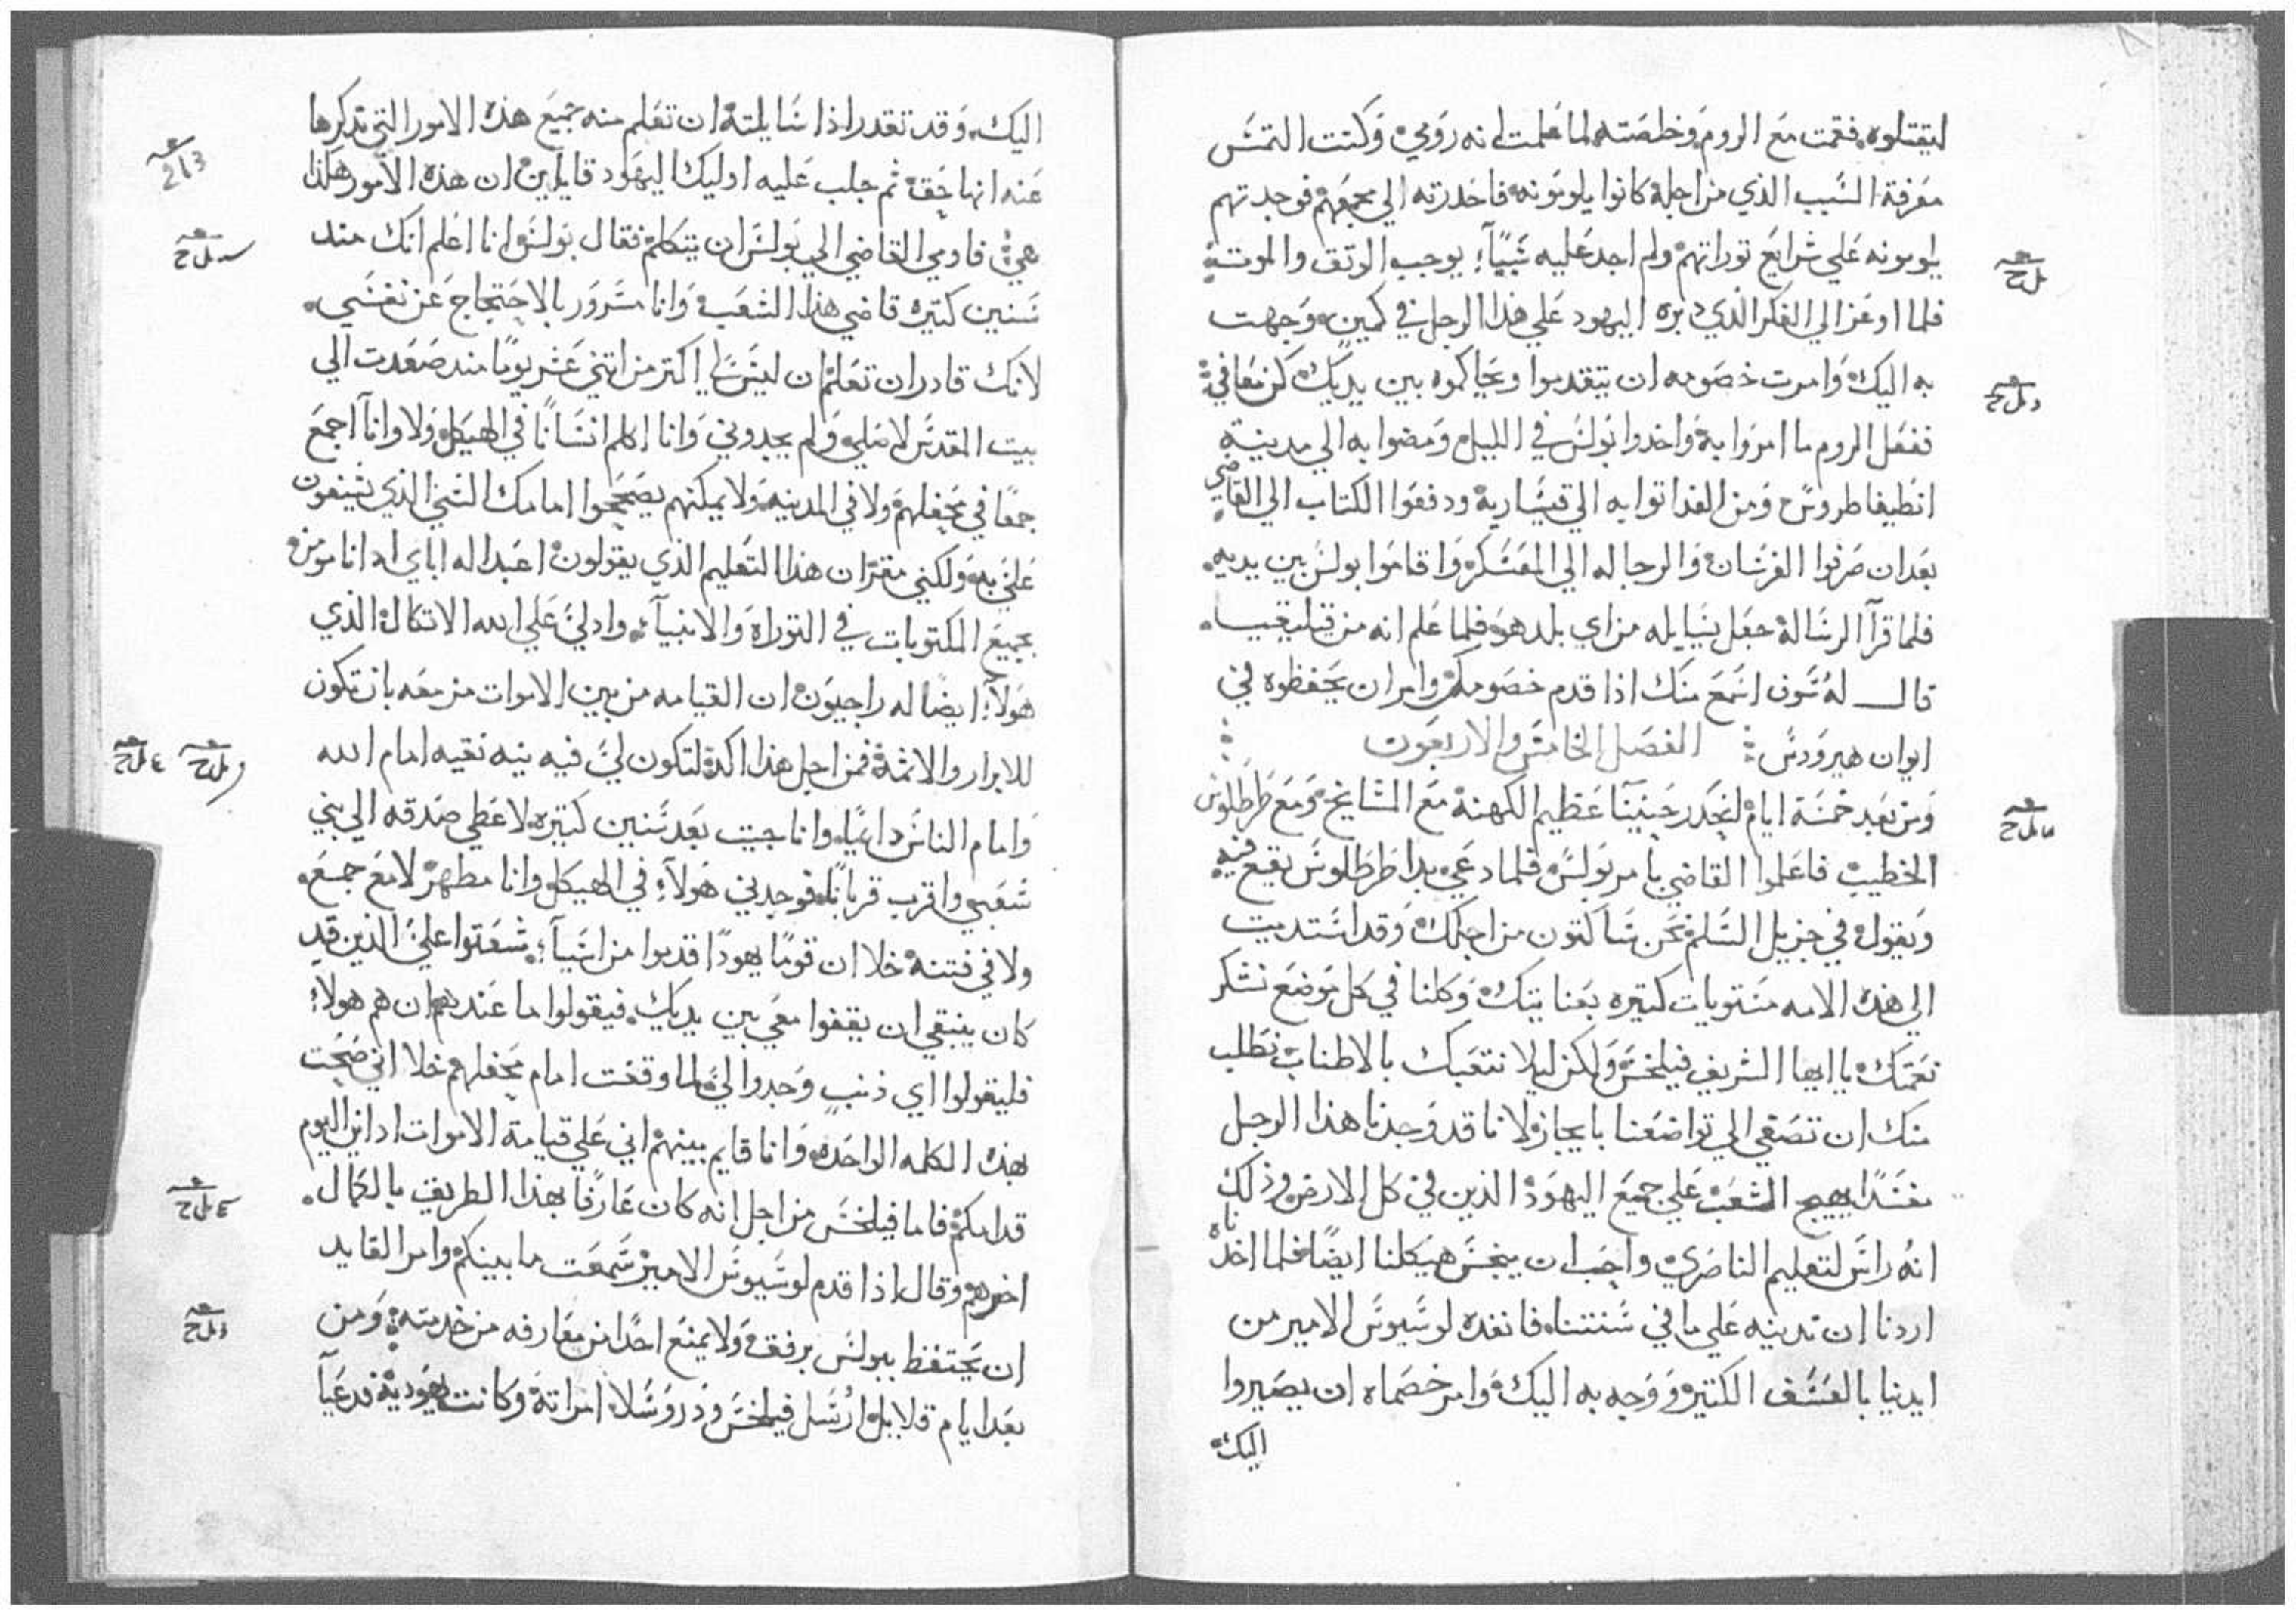 ليقتلوه فقمت مع الروم وخلصته لما علمت انه رومي وكنت التمس
معرفة السبب الذي من اجله كانوا يلومونه فاحدرته الي مجمعهم فوجدتهم
يلومونه علي شرايع توراتهم ولم اجد عليه شيآء يوجب الوتق والموت
فلما اوعز الي الفكر الذي دبره اليهود علي هذا الرجل في كمين وجهت
به اليك وامرت خصومه ان يتقدموا ويحاكموه بين يديك كن معافي
ففعل الروم ما امروا به واخدوا بولس في الليل ومضوا به الي مدينة
انطيفاطروس ومن الغد اتوا به الي قيسارية ودفعوا الكتاب الي القاضي
بعد ان صرفوا الفرسان والرجاله الي المعسكر واقاموا بولس بين يديه
فلما قرآ الرسالة جعل يسايله من اي بلد هو فلما علم انه من قيليقيا
قال له سوف اسمع منك اذا قدم خصومك وامر ان يحفظوه في
ايوان هيرودس الفصل الخامس والاربعون
ومن بعد خمسة ايام انحدر حنينآ عظيم الكهنة مع المشايخ ومع طرطلوس
الخطيب فاعلموا القاضي بامر بولس فلما دعي بدا طرطلوس يقع فيه
ويقول في جزيل السلم نحن ساكنون من اجلك وقد استديت
الي هذه الامه مستويات كتيره بعنايتك وكلنا في كل موضع نشكر
نعمتك ياايها الشريف فيلخس ولكن ليلا نتعبك بالاطناب نطلب
منك ان تصغي الي تواضعنا بايجاز لانا قد وجدنا هذا الرجل
مفسدًا يهيج الشعب علي جميع اليهود الذين في كل الارض وذلك
انه راس لتعليم الناصري واحب ان ينجس هيكلنا ايضًا فلما اخدناه
اردنا ان ندينه علي ما في سنتنا فانقده لوسيوس الامير من
ايدينا بالعسف الكتير ووجه به اليك وامر خصماه ان يصيروا
اليك
اليك وقد تقدر اذا سايلته ان تعلم منه جميع هذه الامور التي نذكرها
عنه انها حق ثم جلب عليه اوليك اليهود قايلين ان هذه الامور هكذا
هي فاومي القاضي الي بولس ان يتكلم فقال بولس وانا اعلم انك مند
سنين كتيره قاضي هذا الشعب وانا مسرور بالاحتجاج عن نفسي
لانك قادر ان تعلم ان ليس لي اكتر من اتني عشر يومًا مند صعدت الي
بيت المقدس لاصلي ولم يجدوني وانا اكلم انسانًا في الهيكل ولا وانآ اجمع
جمعًا في محفلهم ولا في المدينه ولا يمكنهم يصححوا امامك الشي الذي يشنعون
علي به ولكني مقر ان هذا التعليم الذي يقولون اعبد اله اباي اد انا مومن
بجميع المكتوبات في التوراة والانبيآء وادلي علي الله الاتكال الذي
هولآء ايضًا له راجيون ان القيامه من بين الاموات مزمعه بان تكون
للابرار والاثمة فمن اجل هذا اكد لتكون لي فيه نيه نقيه امام الله
وامام الناس دايمًا وانا جيت بعد سنين كتيره لاعطي صدقه الي بني
شعبي واقرب قربانًا فوجدني هولآء في الهيكل وانا مطهر لا مع جمع
ولا في فتنه خلا ان قومًا يهودًا قدموا من اسيآ شعتوا علي الذين قد
كان ينبغي ان يقفوا معي بين يديك فيقولوا ما عندهم ان هم هولاء
فليقولوا اي ذنب وجدوا لي لما وقفت امام محفلهم خلا اني صحت
بهذه الكلمه الواحده وانا قايم بينهم اني علي قيامة الاموات ادان اليوم
قدامكم فاما فيلخس من اجل انه كان عارفًا بهذا الطريق بالكمال
اخرهم وقال اذا قدم لوسيوس الامير سمعت ما بينكم وامر القايد
ان يحتفظ ببولس برفق ولا يمنع احدًا من معارفه من خدمته ومن
بعد ايام قلايل ارسل فيلخس ودروسلا امراته وكانت يهودية فدعيآ
213